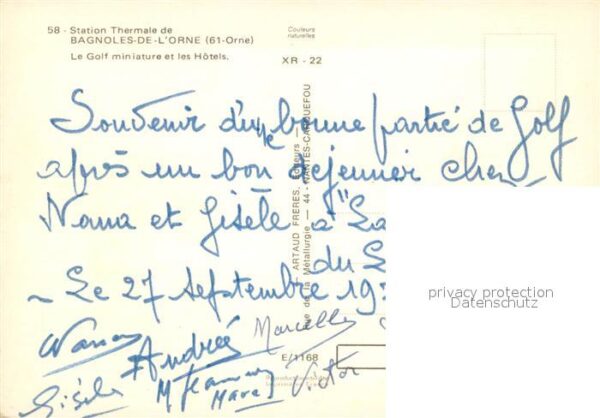 58 - Station Thermale de
BAGNOLES-DE-L'ORNE (61-Orne)
Le Golf miniature et les Hôtels.
Couleurs
naturelles
XR - 22
Souvenir d'une bonne partie de Golf
après un bon déjeuner chez
Nana et Gisèle à "La
du L
- Le 27 Septembre 19
Nana
Andrée
Marcelle
Gisèle
M Jeanne
Marc
Victor
ARTAUD FRÈRES, Éditeurs
rue de la Métallurgie - 44 - NANTES-CARQUEFOU
E/1168
privacy protection
Datenschutz